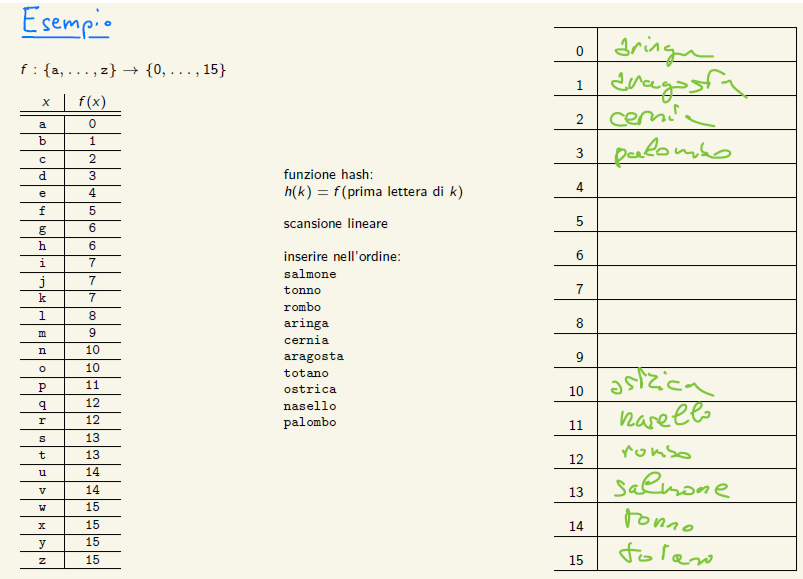 Esempio
f : {a, . . . , z} → {0, . . . , 15}
x f(x)
a 0
b 1
c 2
d 3
e 4
f 5
g 6
h 6
i 7
j 7
k 7
l 8
m 9
n 10
o 10
p 11
q 12
r 12
s 13
t 13
u 14
v 14
w 15
x 15
y 15
z 15
funzione hash:
h(k) = f(prima lettera di k)
scansione lineare
inserire nell'ordine:
salmone
tonno
rombo
aringa
cernia
aragosta
totano
ostrica
nasello
palombo
0 aringa
1 aragosta
2 cernia
3 palombo
4
5
6
7
8
9
10 ostrica
11 nasello
12 rombo
13 salmone
14 tonno
15 totano